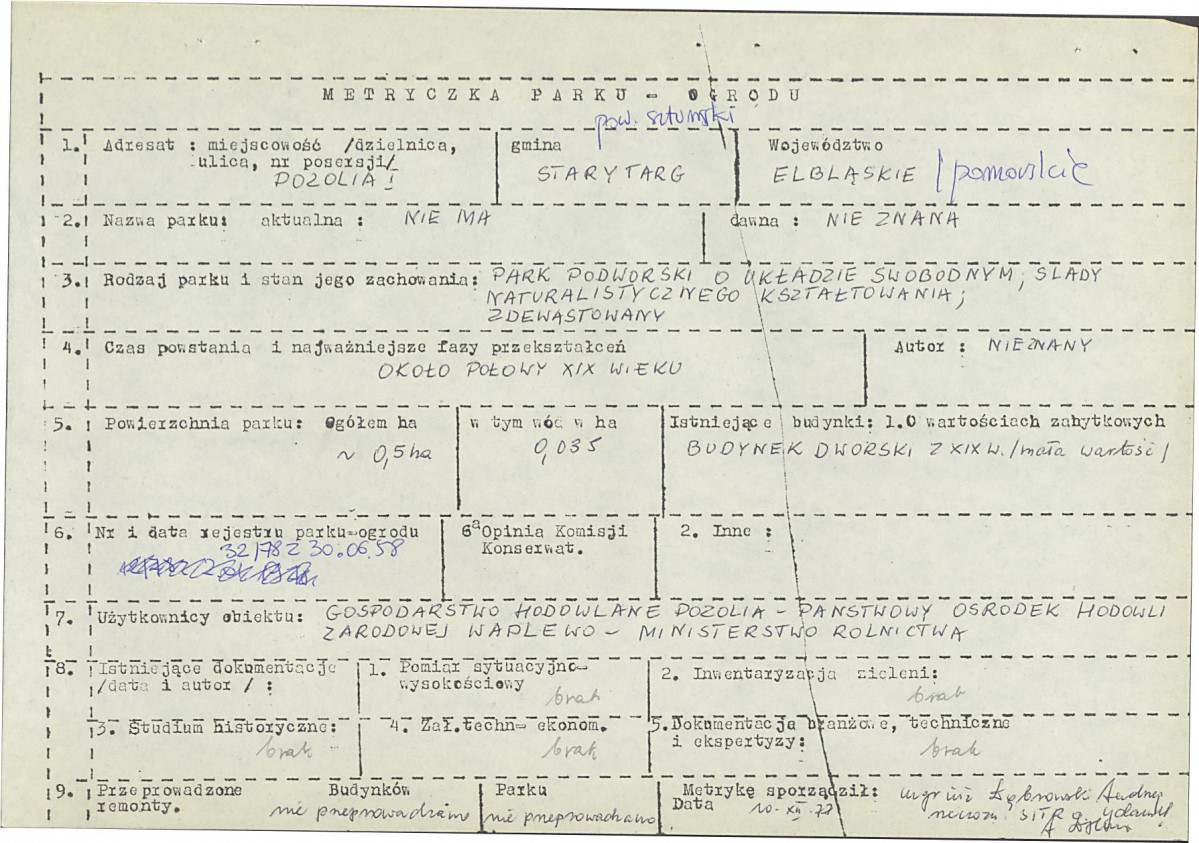 METRYCZKA PARKU - OGRODU
pow. sztumski
1. Adresat : miejscowość /dzielnica, ulica, nr posesji/
POZOLIA
gmina
STARY TARG
Województwo
ELBLĄSKIE /pomorskie
2. Nazwa parku: aktualna : NIE MA
dawna : NIE ZNANA
3. Rodzaj parku i stan jego zachowania: PARK PODWORSKI O UKŁADZIE SWOBODNYM, SLADY
NATURALISTYCZNEGO KSZTAŁTOWANIA;
ZDEWASTOWANY
4. Czas powstania i najważniejsze fazy przekształceń
OKOŁO POŁOWY XIX WIEKU
Autor : NIEZNANY
5. Powierzchnia parku: Ogółem ha
~ 0,5 ha
w tym wód w ha
0,035
Istniejące budynki: 1.O wartościach zabytkowych
BUDYNEK DWORSKI Z XIX W. /mała wartość/
6. Nr i data rejestru parku-ogrodu
32/78 z 30.06.58
6a Opinia Komisji
Konserwat.
2. Inne :
7. Użytkownicy obiektu: GOSPODARSTWO HODOWLANE POZOLIA - PAŃSTWOWY OSRODEK HODOWLI
ZARODOWEJ WAPLEWO - MINISTERSTWO ROLNICTWA
8. Istniejące dokumentacje
/data i autor / :
1. Pomiar sytuacyjno-
wysokościowy
brak
2. Inwentaryzacja zieleni:
brak
3. Studium historyczne:
brak
4. Zał.techn- ekonom.
brak
5.Dokumentacja branżowe, techniczne
i ekspertyzy:
brak
9. Przeprowadzone
remonty.
Budynków
nie przeprowadzano
Parku
nie przeprowadzano
Metrykę sporządził: mgr inż Dąbrowski Andrzej
Data 10. XII. 78
SITR